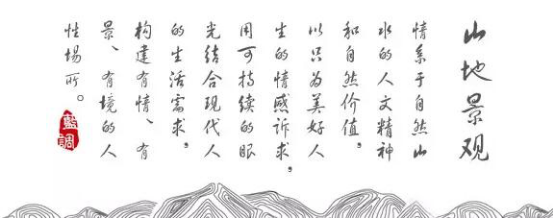 山地景观
情系于自然山
水的人文精神
和自然价值。
以只为美好人
生的情感诉求，
用可持续的眼
光结合现代人
的生活需求，
构建有情、有
景、有境的人
性场所。
蓝调